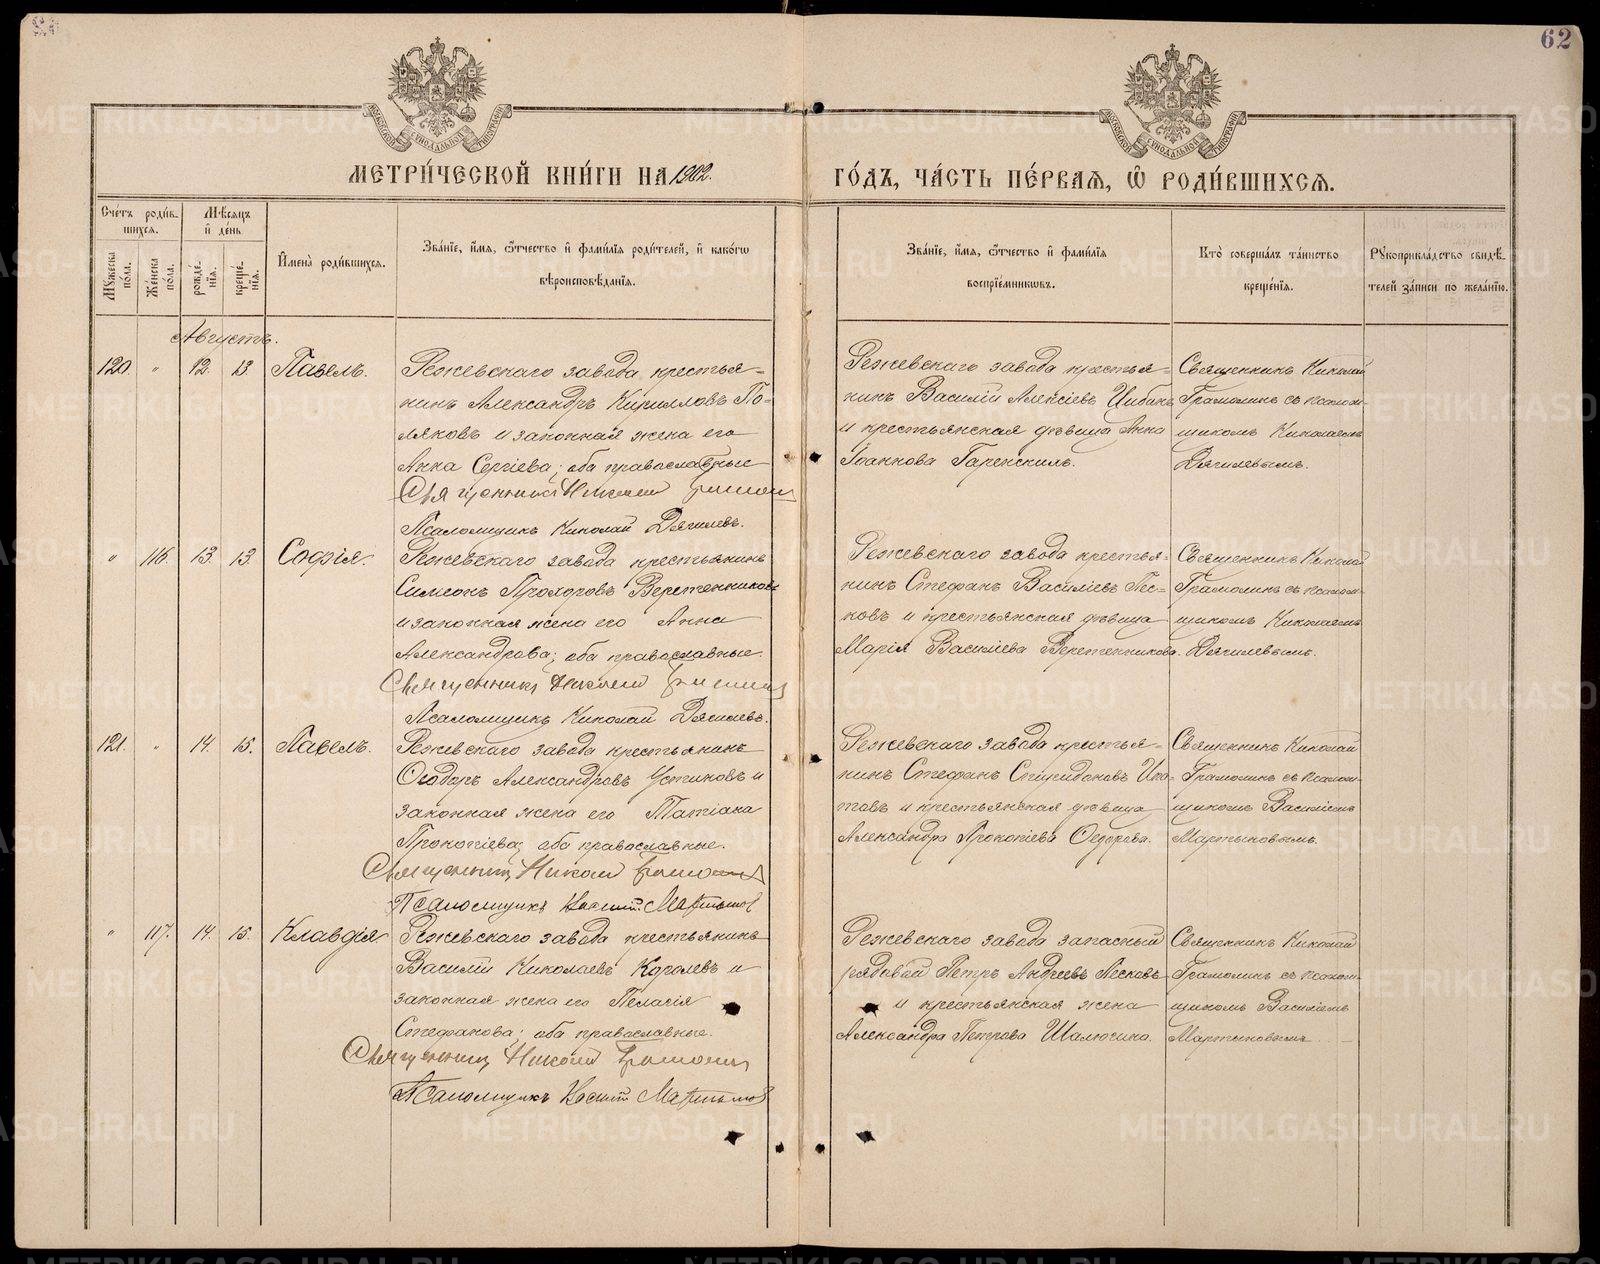 62
МЕТРИ́ЧЕСКОЙ КНИ́ГИ НА 1902.
ГО́ДЪ, ЧА́СТЬ ПЕ́РВАѦ, Ѡ РОДИ́ВШИХСѦ.
Сче́тъ роди́в-
шихся.
Мѣ́сяцъ
и҆ де́нь
Му́жеска
по́ла.
Же́нска
по́ла.
рожде́-
нїя.
креще́-
нїя.
И҆мена̀ роди́вшихся.
Зва́нїе, и҆́мя, ѻ҆́тчество и҆ фами́лїя роди́телей, и҆ како́гѡ
вѣроисповѣ́данїя.
Зва́нїе, и҆́мя, ѻ҆́тчество и҆ фами́лїя
воспрїе́мникѡвъ.
Кто̀ соверша́лъ та́инство
креще́нїя.
Рꙋкоприкла́дство свидѣ́-
телей за́писи по жела́нїю.
Августъ.
120. " 12. 13. Павелъ.
Режевскаго завода крестья-
нинъ Александръ Кирилловъ По-
ляковъ и законная жена его
Анна Сергіева; оба православные
Священникъ Николай Грамолин
Псаломщикъ Николай Дягилевъ.
Режевскаго завода крестья-
нинъ Василій Алексіевъ
и крестьянская дѣвица Анна
Іоаннова
Священникъ Николай
Грамолинъ съ псалом-
щикомъ Николаемъ
Дягилевымъ.
" 116. 13. 13. Софія.
Режевскаго завода крестьянинъ
Симеонъ Прохоровъ Веретенниковъ
и законная жена его Анна
Александрова; оба православные.
Священникъ Николай Грамолин
Псаломщикъ Николай Дягилевъ.
Режевскаго завода крестья-
нинъ Стефанъ Василіевъ Пес-
ковъ и крестьянская дѣвица
Марія Василіева Веретенникова.
Священникъ Николай
Грамолинъ съ псалом-
щикомъ Николаемъ
Дягилевымъ.
121. " 14. 15. Павелъ.
Режевскаго завода крестьянинъ
Ѳеодоръ Александровъ Устиновъ и
законная жена его Татіана
Прокопіева; оба православные.
Священникъ Николай Грамолин
Псаломщикъ Василій Мартынов
Режевскаго завода крестья-
нинъ Стефанъ Спиридоновъ Ипа-
товъ и крестьянская дѣвица
Александра Прокопіева Ѳедорова.
Священникъ Николай
Грамолинъ съ псалом-
щикомъ Василіемъ
Мартыновымъ.
" 117. 14. 15. Клавдія
Режевскаго завода крестьянинъ
Василій Николаевъ Королевъ и
законная жена его Пелагія
Стефанова; оба православные.
Священникъ Николай Грамолин
Псаломщикъ Василій Мартынов
Режевскаго завода запасный
рядовой Петръ Андреевъ Песковъ
и крестьянская жена
Александра Петрова Шалюгина.
Священникъ Николай
Грамолинъ съ псалом-
щикомъ Василіемъ
Мартыновымъ
METRIKI.GASO-URAL.RU